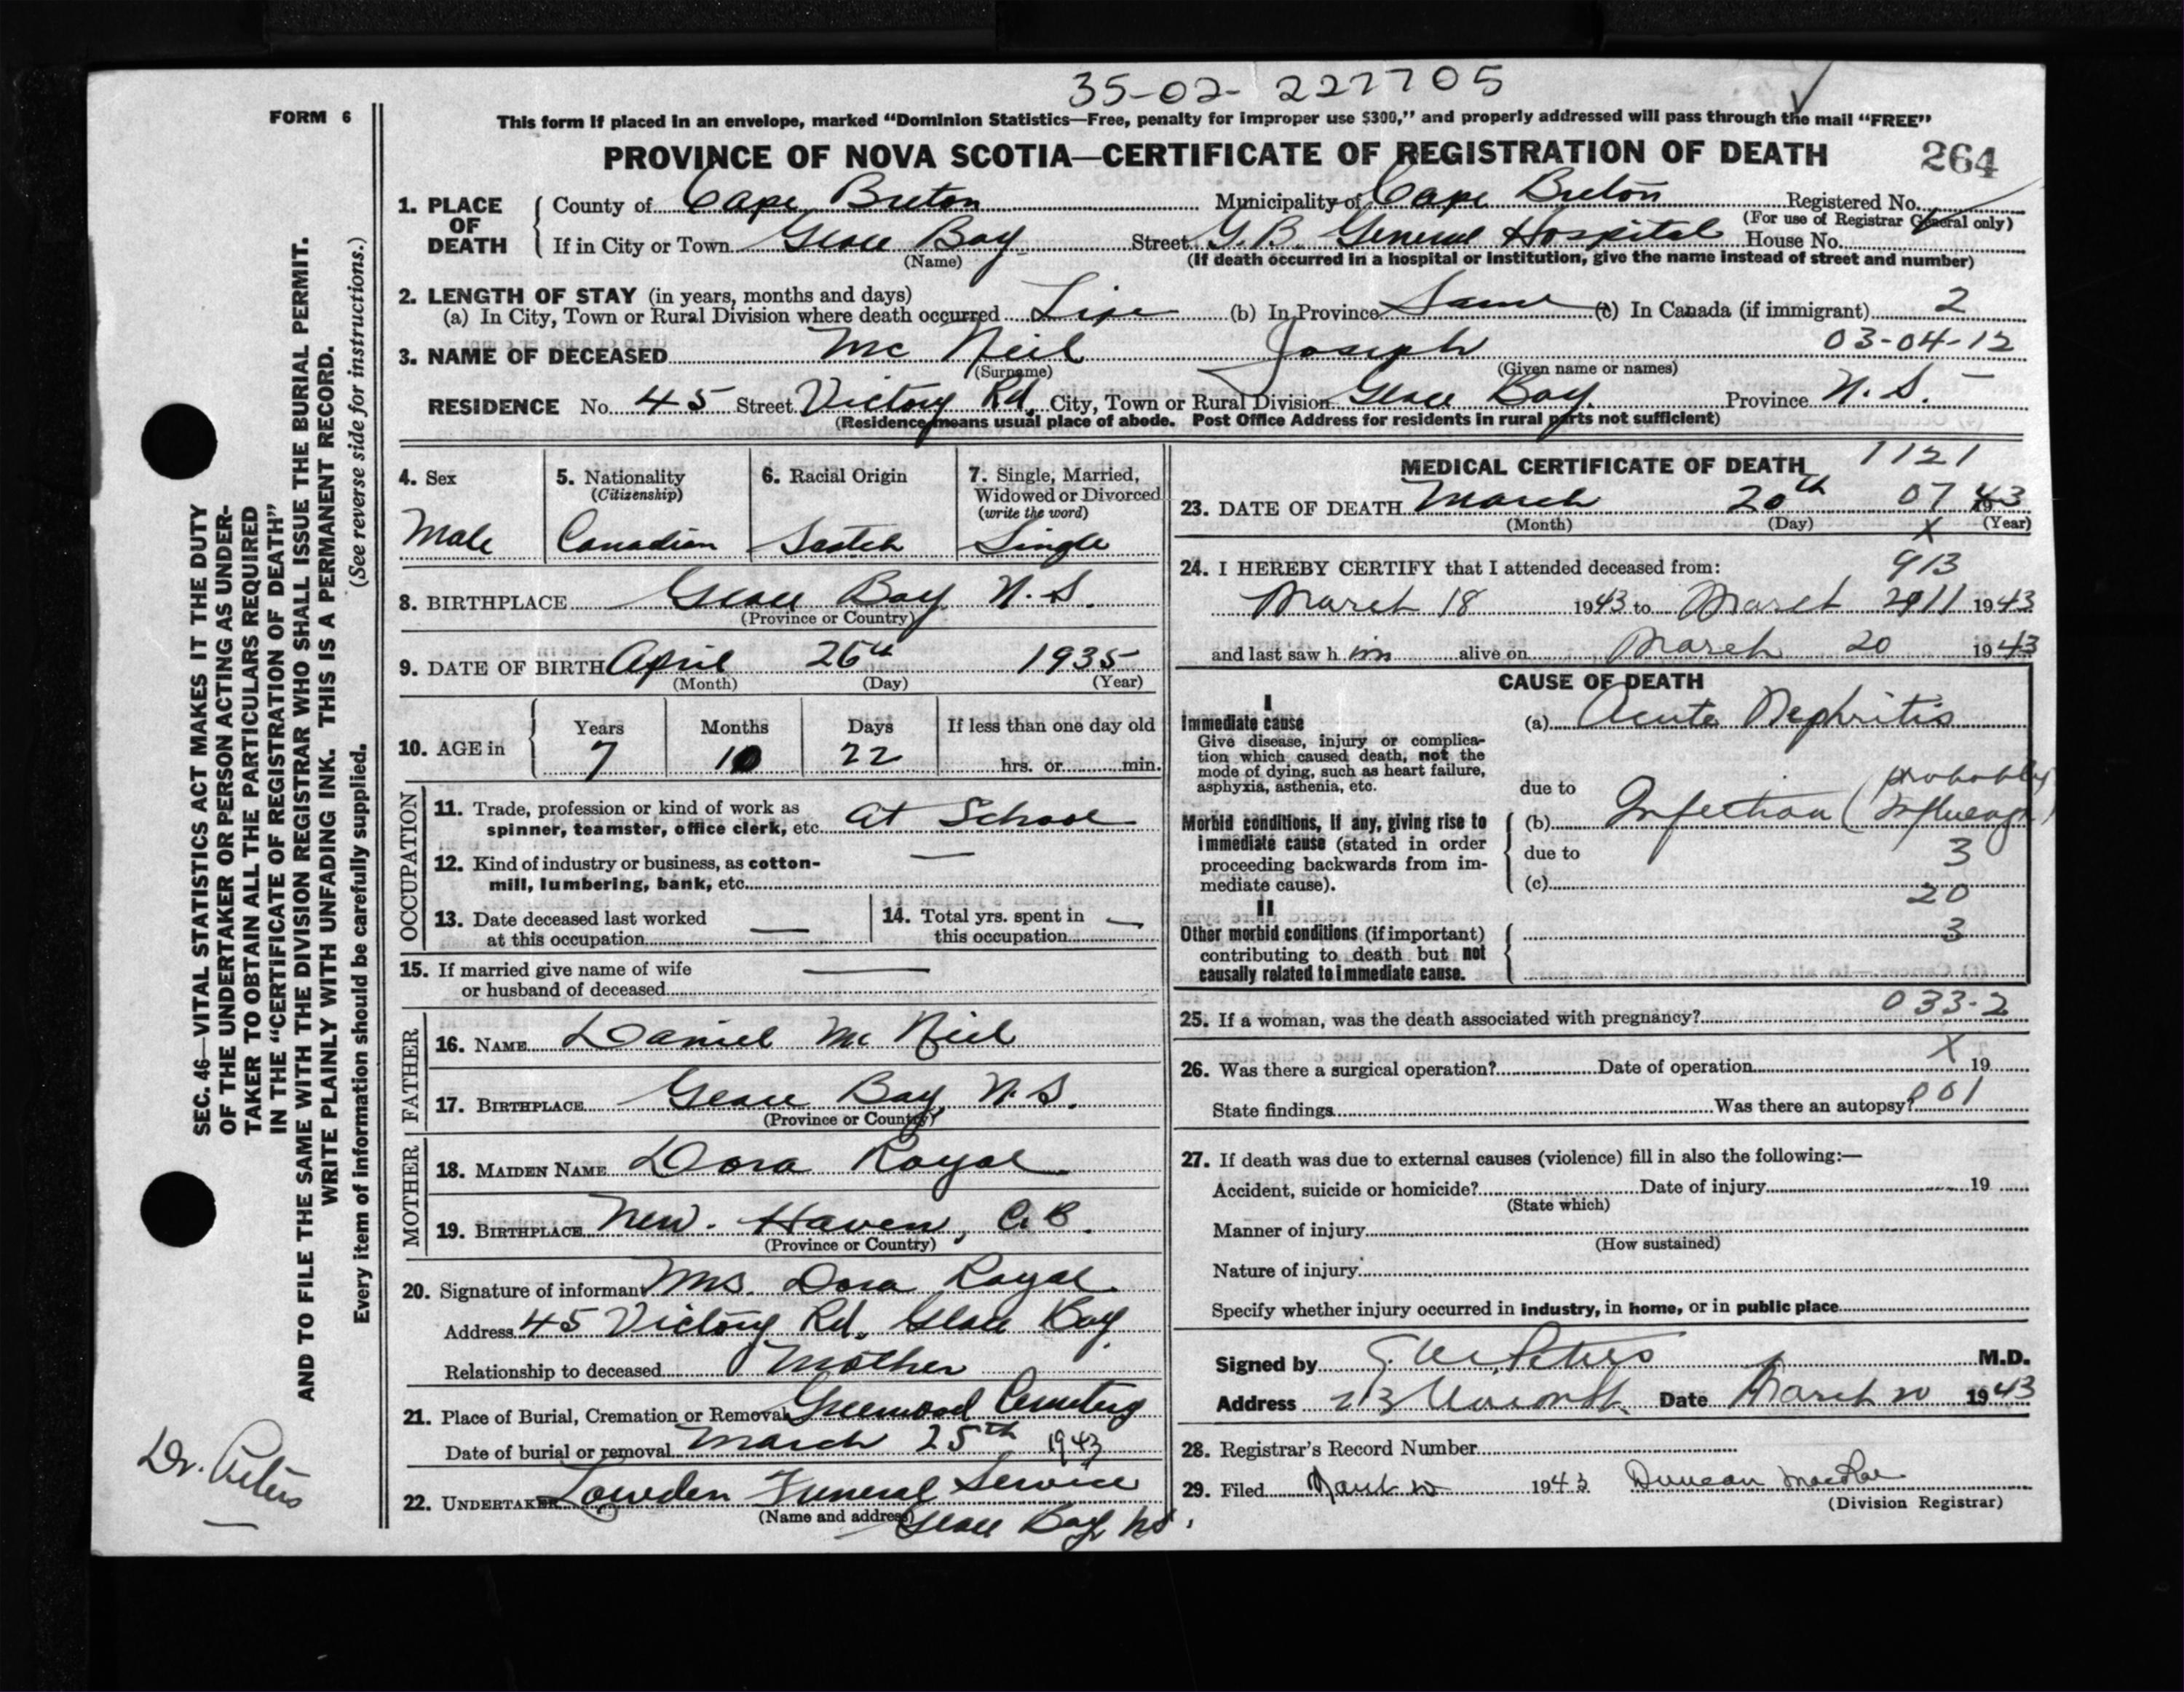 35-02- 227705
FORM 6
This form if placed in an envelope, marked "Dominion Statistics—Free, penalty for improper use $300," and properly addressed will pass through the mail "FREE"
PROVINCE OF NOVA SCOTIA—CERTIFICATE OF REGISTRATION OF DEATH 264
1. PLACE OF DEATH
County of Cape Breton Municipality of Cape Breton Registered No.
(For use of Registrar General only)
If in City or Town Glace Bay Street G.B. General Hospital House No.
(Name) (If death occurred in a hospital or institution, give the name instead of street and number)
2. LENGTH OF STAY (in years, months and days)
(a) In City, Town or Rural Division where death occurred Life (b) In Province Same (c) In Canada (if immigrant) 2
3. NAME OF DECEASED Mc Neil Joseph 03-04-12
(Surname) (Given name or names)
RESIDENCE No. 45 Street Victory Rd. City, Town or Rural Division Glace Bay. Province N. S.
(Residence means usual place of abode. Post Office Address for residents in rural parts not sufficient)
4. Sex
Male
5. Nationality
(Citizenship)
Canadian
6. Racial Origin
Scotch
7. Single, Married,
Widowed or Divorced
(write the word)
Single
8. BIRTHPLACE Glace Bay N.S.
(Province or Country)
9. DATE OF BIRTH April 26th 1935
(Month) (Day) (Year)
10. AGE in
Years Months Days If less than one day old
7 10 22 hrs. or min.
OCCUPATION
11. Trade, profession or kind of work as
spinner, teamster, office clerk, etc. At School
12. Kind of industry or business, as cotton-
mill, lumbering, bank, etc. —
13. Date deceased last worked
at this occupation —
14. Total yrs. spent in
this occupation —
15. If married give name of wife
or husband of deceased —
FATHER
16. NAME Daniel Mc Neil
17. BIRTHPLACE Glace Bay, N.S.
(Province or Country)
MOTHER
18. MAIDEN NAME Dora Royal
19. BIRTHPLACE New. Haven, C.B.
(Province or Country)
20. Signature of informant Mrs. Dora Royal
Address 45 Victory Rd. Glace Bay.
Relationship to deceased Mother
21. Place of Burial, Cremation or Removal Greenwood Cemetery
Date of burial or removal March 25th 1943
22. UNDERTAKER Lowden Funeral Service
(Name and address) Glace Bay, N.S.
MEDICAL CERTIFICATE OF DEATH 1121
23. DATE OF DEATH March 20th 07 1943
(Month) (Day) X (Year)
24. I HEREBY CERTIFY that I attended deceased from: 913
March 18 1943 to March 1943
and last saw h im alive on March 20 1943
CAUSE OF DEATH
I
Immediate cause
Give disease, injury or complica-
tion which caused death, not the
mode of dying, such as heart failure,
asphyxia, asthenia, etc.
(a) Acute Nephritis
due to
Morbid conditions, if any, giving rise to
immediate cause (stated in order
proceeding backwards from im-
mediate cause).
(b) Infection (probably
due to
3
(c)
20
II
Other morbid conditions (if important)
contributing to death but not
causally related to immediate cause.
3
033-2
25. If a woman, was the death associated with pregnancy?
26. Was there a surgical operation? Date of operation X 19
State findings Was there an autopsy? 001
27. If death was due to external causes (violence) fill in also the following:—
Accident, suicide or homicide? Date of injury 19
(State which)
Manner of injury
(How sustained)
Nature of injury
Specify whether injury occurred in industry, in home, or in public place
Signed by Peters M.D.
Address Date March 20 1943
28. Registrar's Record Number
29. Filed 1943 Duncan MacRae
(Division Registrar)
SEC. 46—VITAL STATISTICS ACT MAKES IT THE DUTY
OF THE UNDERTAKER OR PERSON ACTING AS UNDER-
TAKER TO OBTAIN ALL THE PARTICULARS REQUIRED
IN THE "CERTIFICATE OF REGISTRATION OF DEATH"
AND TO FILE THE SAME WITH THE DIVISION REGISTRAR WHO SHALL ISSUE THE BURIAL PERMIT.
WRITE PLAINLY WITH UNFADING INK. THIS IS A PERMANENT RECORD.
Every item of information should be carefully supplied. (See reverse side for instructions.)
Dr. Peters